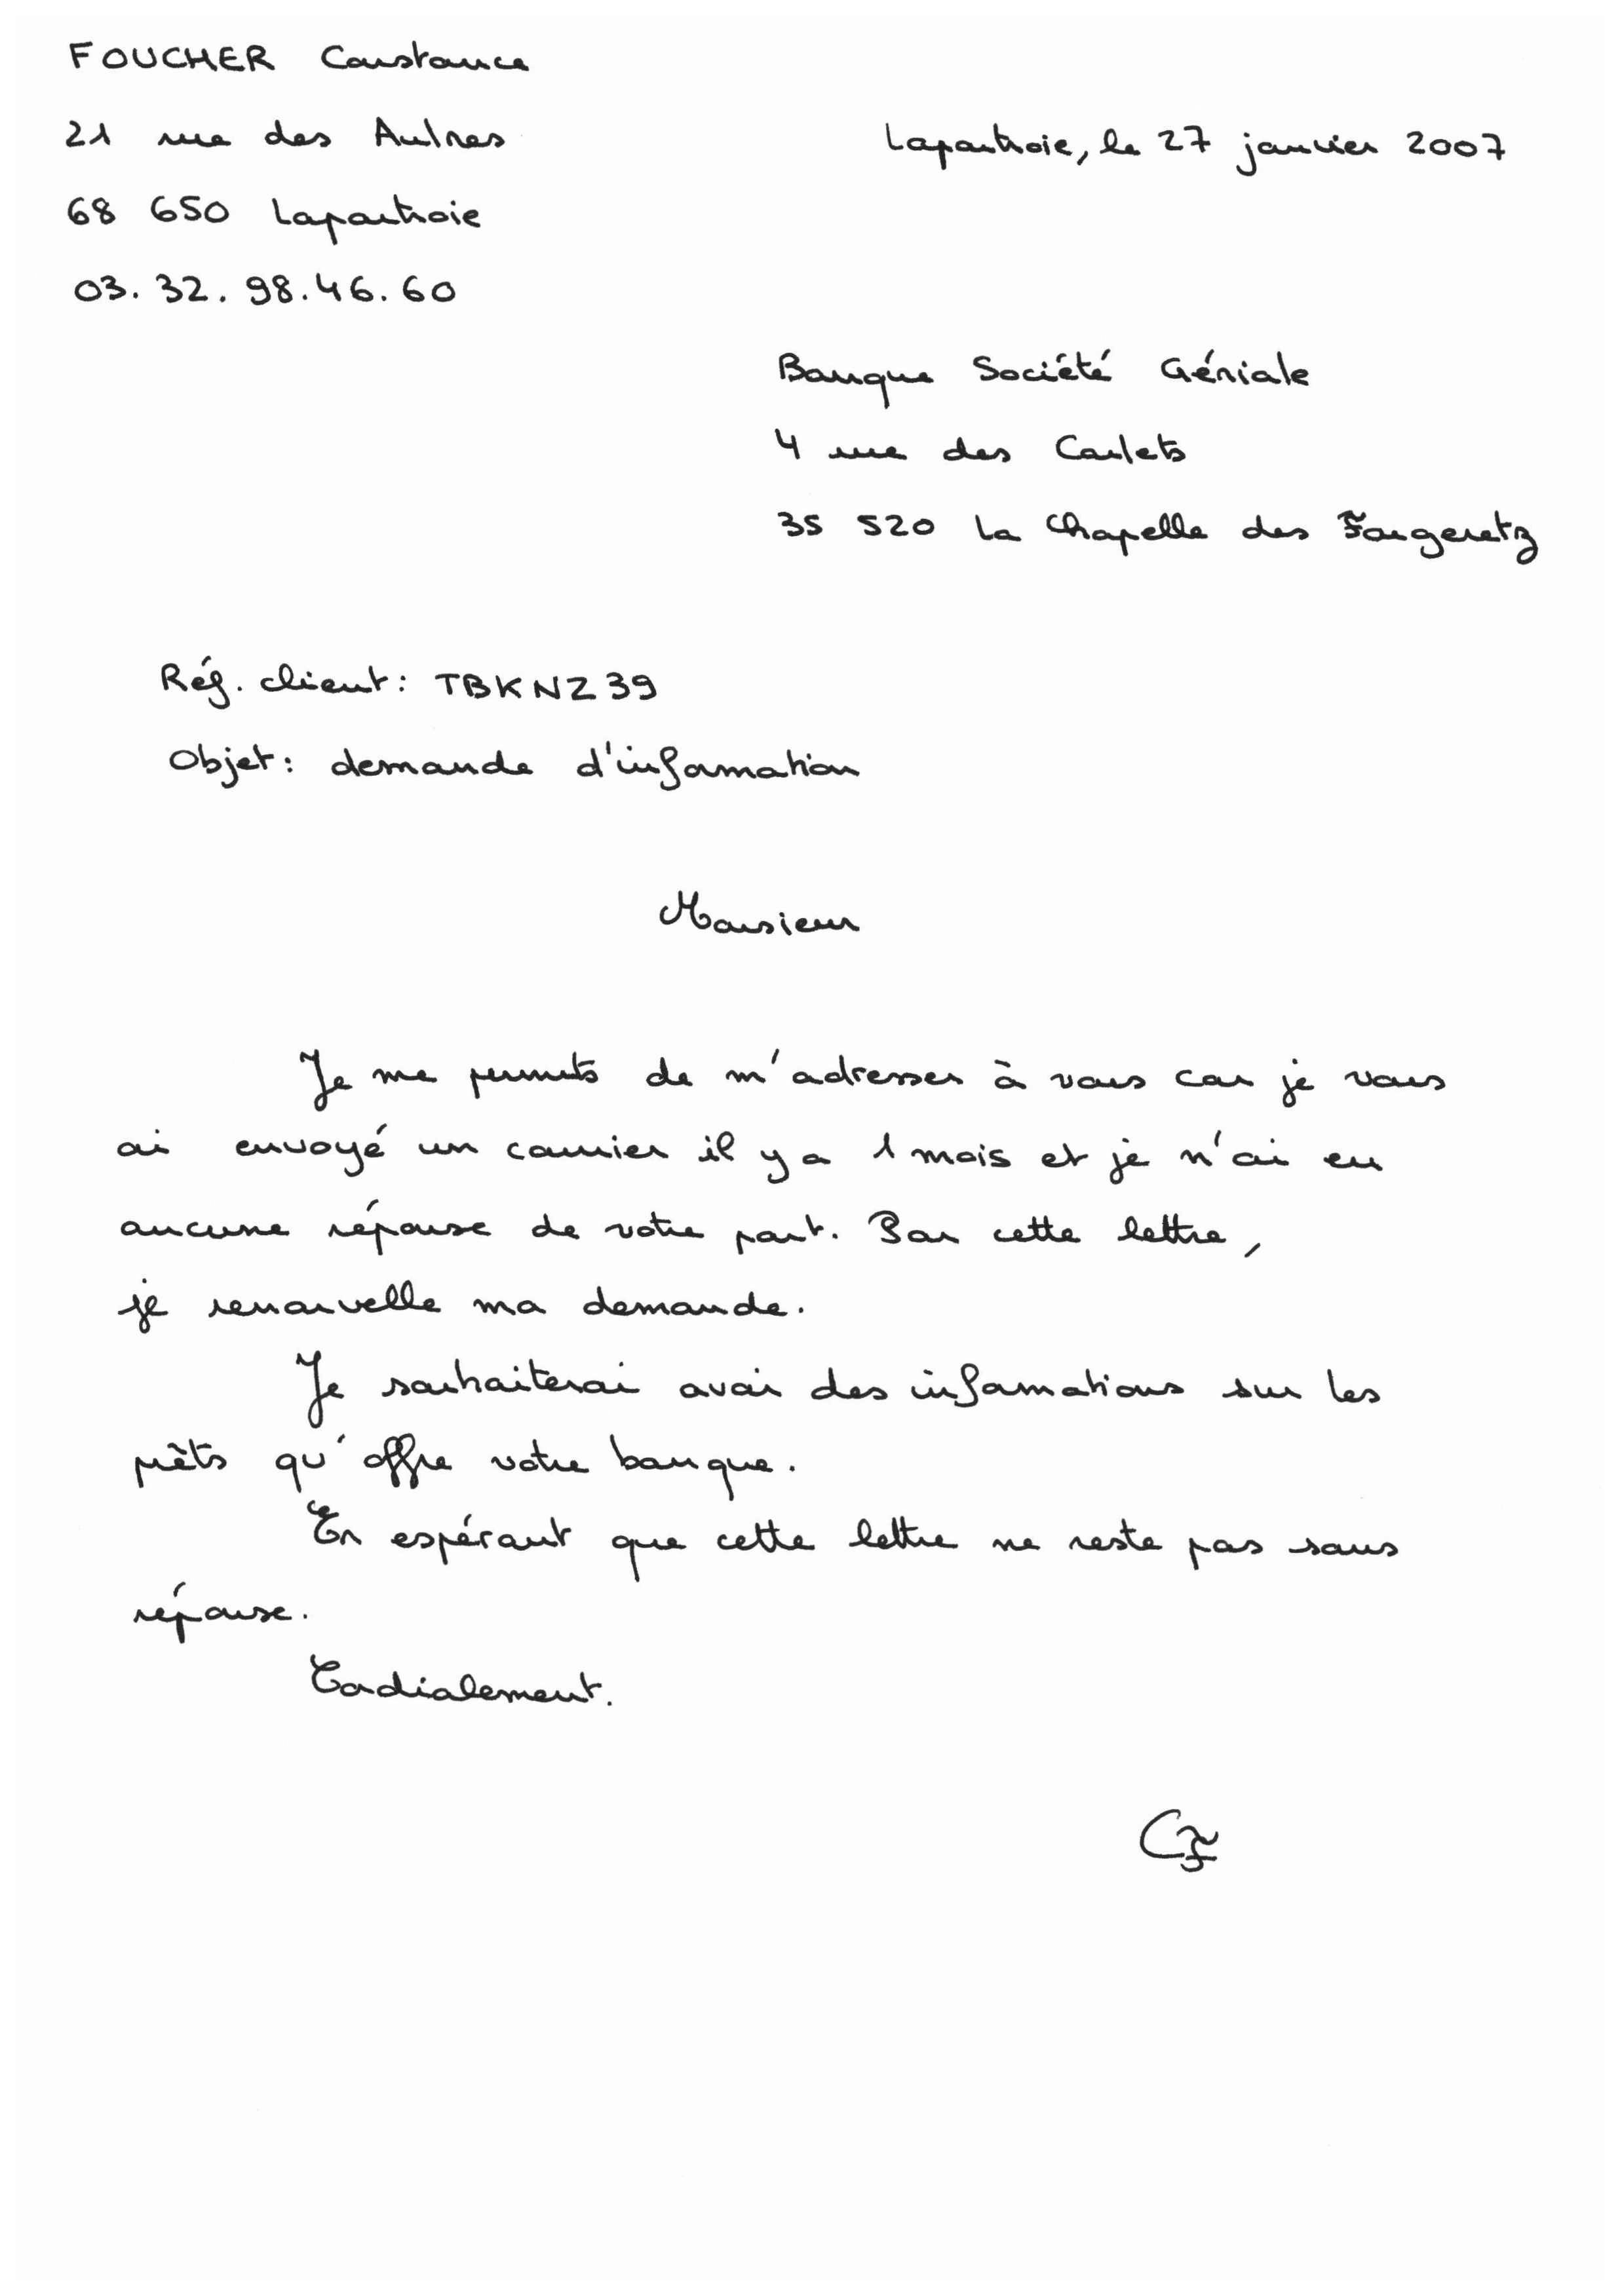 FOUCHER Constance
21 rue des Aulnes
Lapoutroie, le 27 janvier 2007
68 650 Lapoutroie
03. 32. 98. 46. 60
Banque Société Géniale
4 rue des Carlets
35 520 La Chapelle des Fougeretz
Réf. client : TBKNZ39
Objet : demande d'information
Monsieur
Je me permets de m'adresser à vous car je vous
ai envoyé un courrier il y a 1 mois et je n'ai eu
aucune réponse de votre part. Par cette lettre,
je renouvelle ma demande.
Je souhaiterai avoir des informations sur les
prêts qu'offre votre banque.
En espérant que cette lettre ne reste pas sans
réponse.
Cordialement.
CF